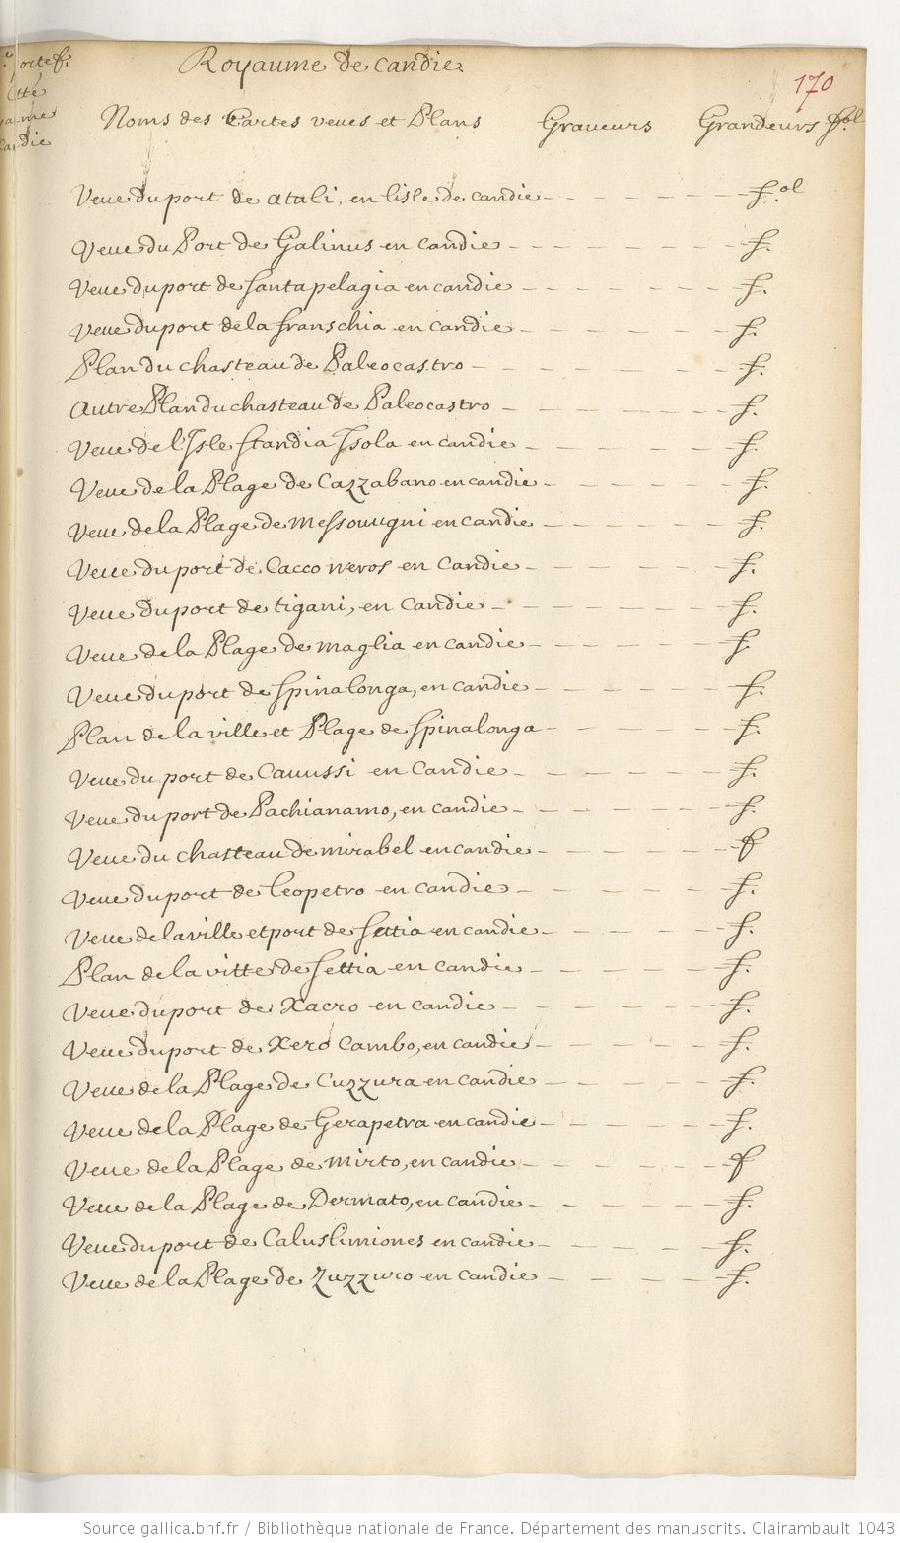 Royaume de candie
170
portef.
Noms des Cartes veues et Plans Graveurs Grandeurs fol
Veue du port de atali, en lisle de candie - f.ol
Veue du Port de Galinus en candie - f.
Veue du port de santa pelagia en candie - f.
Veue du port de la franschia en candie - f.
Plan du chasteau de Paleocastro - f.
Autre Plan du chasteau de Paleocastro - f.
Veue de l'Isle standia Isola en candie - f.
Veue de la Plage de Cazzabano en candie - f.
Veue de la Plage de Messouugni en candie - f.
Veue du port de Cacco neros en Candie - f.
Veue du port de tigani, en Candie - f.
Veue de la Plage de maglia en candie - f.
Veue du port de spinalonga, en candie - f.
Plan de la ville et Plage de spinalonga - f.
Veue du port de Cauussi en Candie - f.
Veue du port de Pachianamo, en candie - f.
Veue du chasteau de mirabel en candie - f
Veue du port de leopetro en candie - f.
Veue de la ville et port de settia en candie - f.
Plan de la ville de settia en candie - f.
Veue du port de Xacro en candie - f.
Veue du port de Xero Cambo, en candie - f.
Veue de la Plage de Cuzzura en candie - f.
Veue de la Plage de Gerapetra en candie - f.
Veue de la Plage de mirto, en candie - f
Veue de la Plage de Dermato, en candie - f.
Veue du port de Caluslimiones en candie - f.
Veue de la Plage de Zuzzuro en candie - f.
Source gallica.bnf.fr / Bibliothèque nationale de France. Département des manuscrits. Clairambault 1043